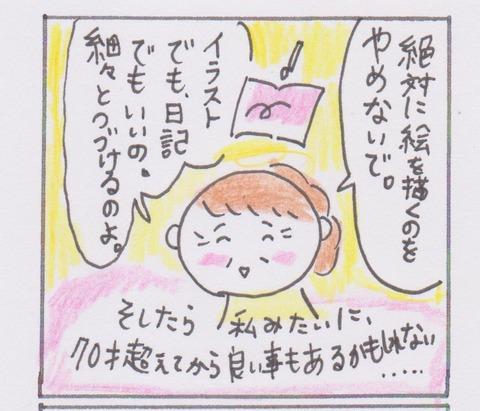 絶対に絵を描くのを
やめないで。
イラスト
でも、日記
でもいいの。
細々とつづけるのよ。
そしたら 私みたいに、
70才超えてから良い事もあるかもしれない
.....